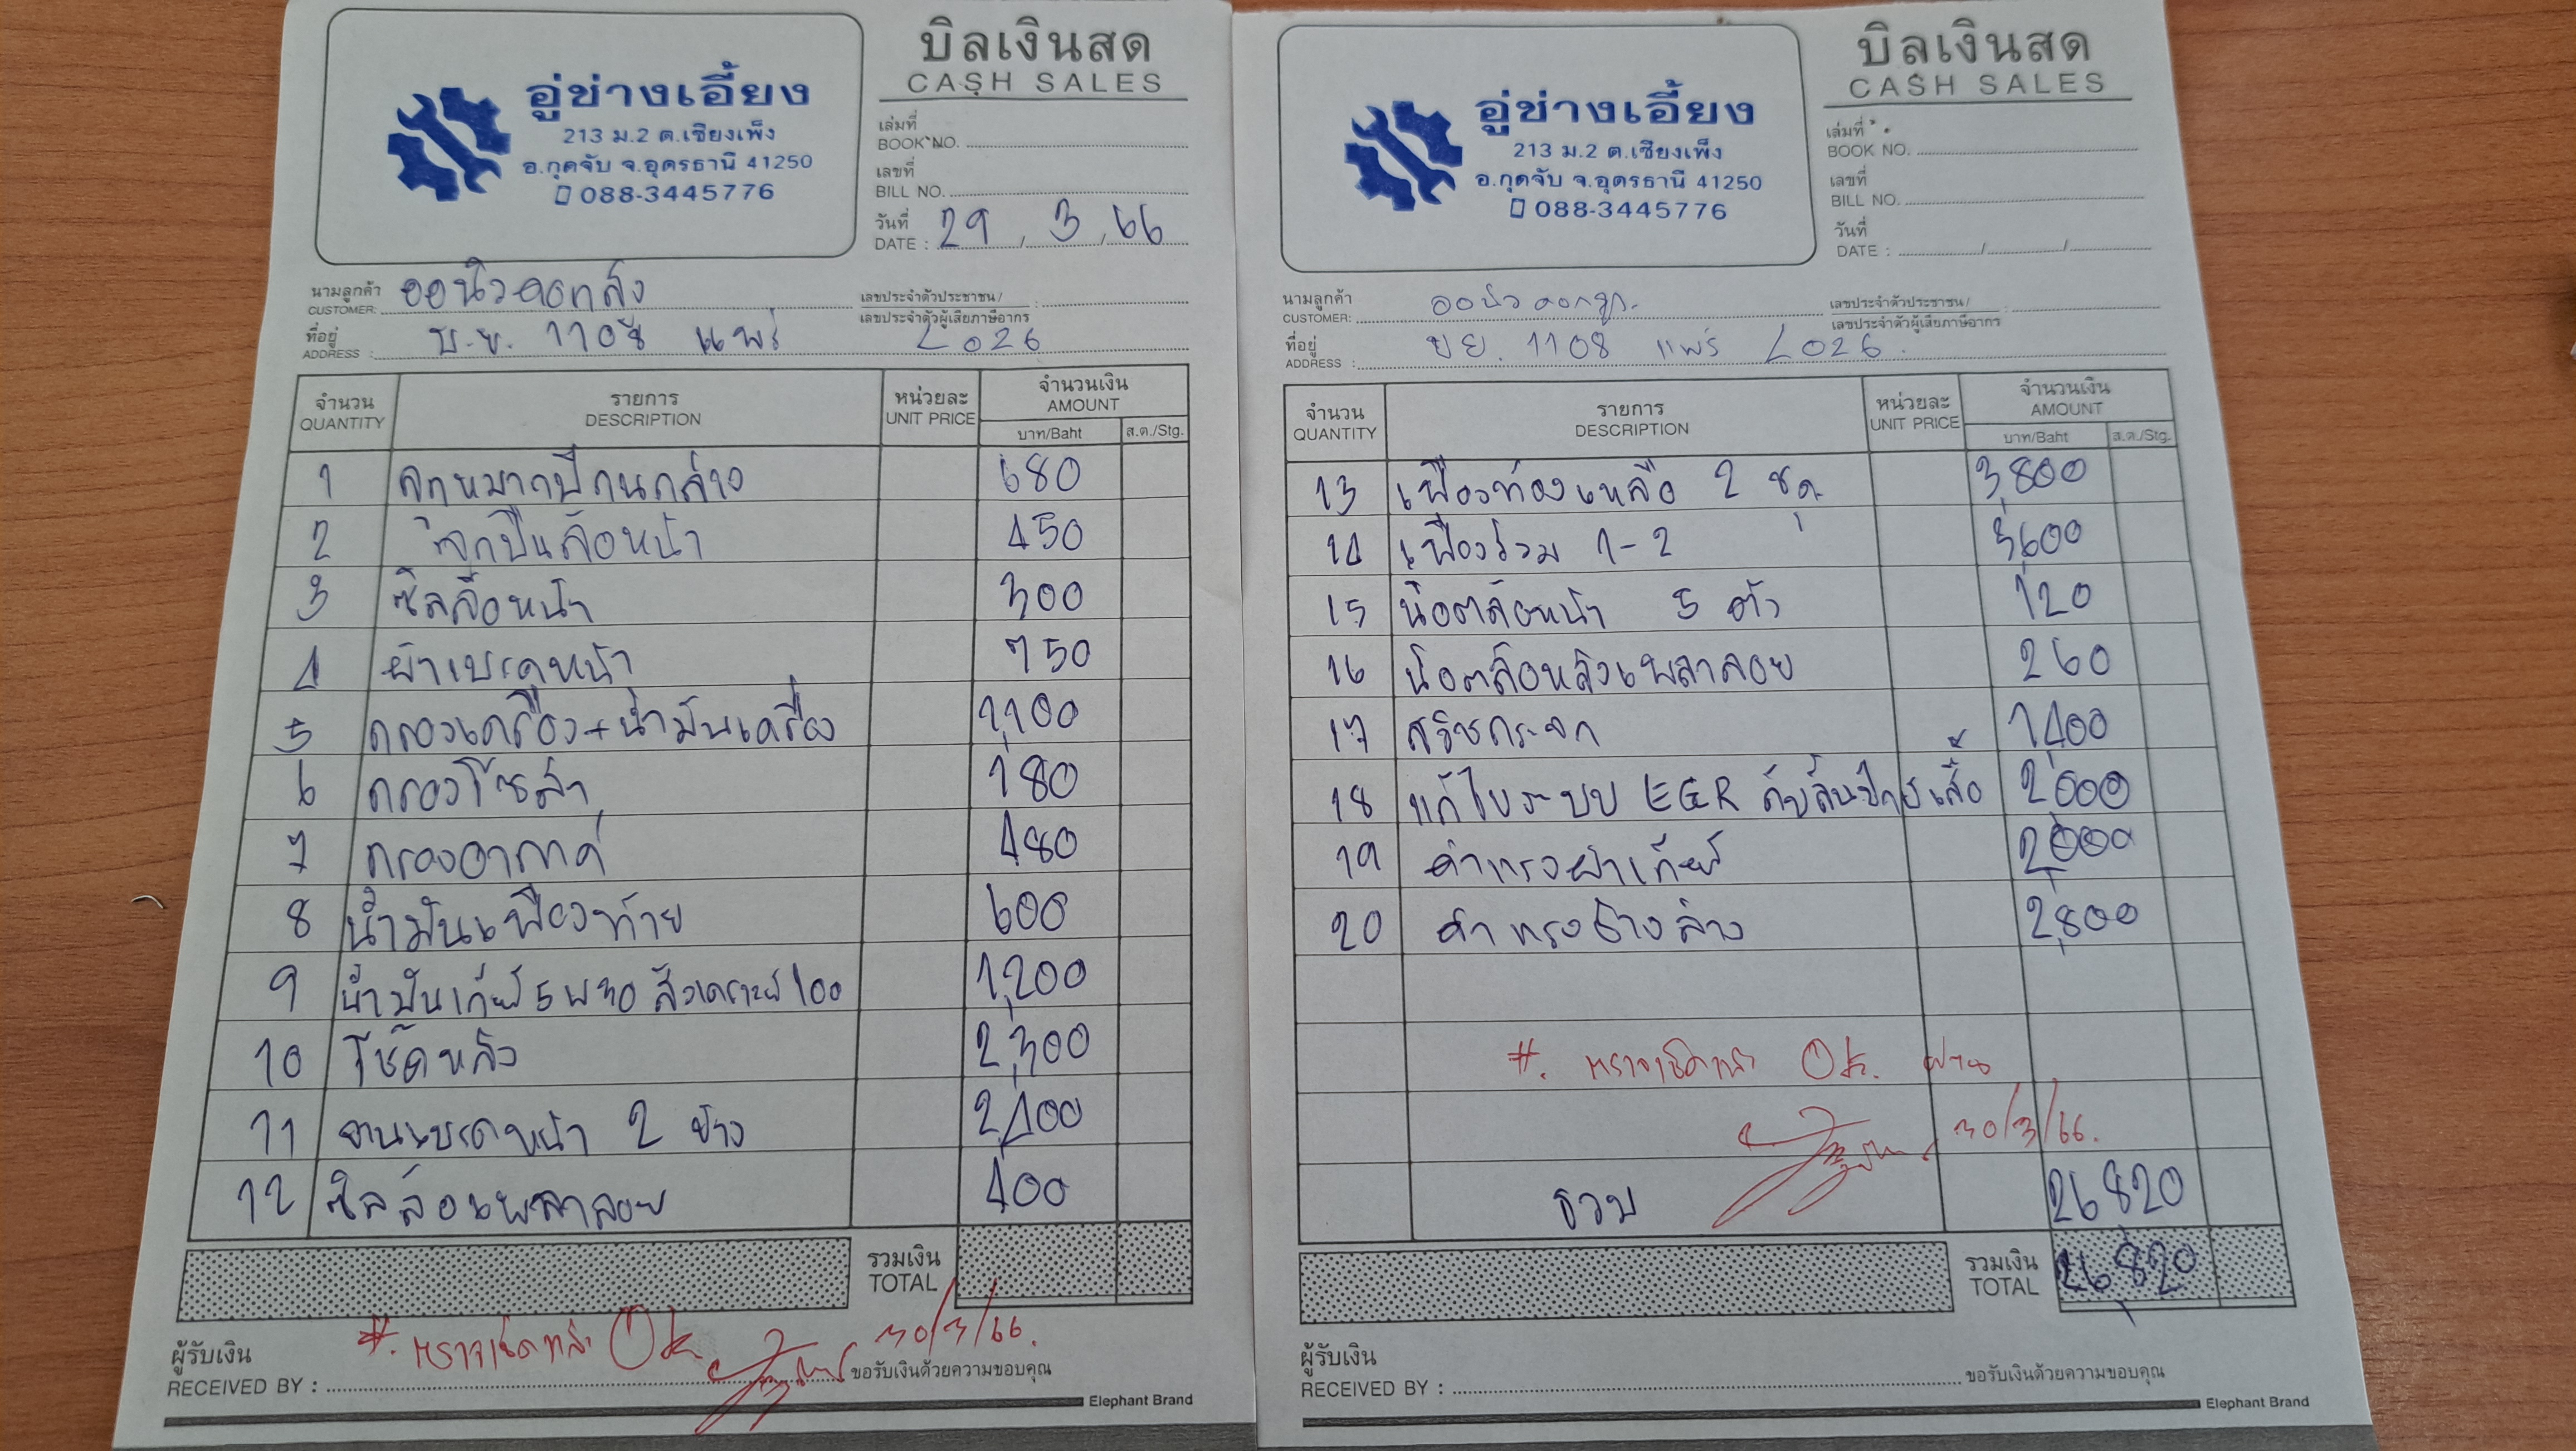 อู่ช่างเอี้ยง
213 ม.2 ต.เชียงเพ็ง
อ.กุดจับ จ.อุดรธานี 41250
088-3445776
บิลเงินสด
CASH SALES
เล่มที่
BOOK NO.
เลขที่
BILL NO.
วันที่
DATE : 29 / 3 / 66
นามลูกค้า
CUSTOMER: ออนิว
เลขประจำตัวประชาชน/
เลขประจำตัวผู้เสียภาษีอากร
ที่อยู่
ADDRESS : บ.ย. 1108 แพร่ 2026
จำนวน รายการ หน่วยละ จำนวนเงิน
QUANTITY DESCRIPTION UNIT PRICE AMOUNT
บาท/Baht ส.ต./Stg.
1 ลูกหมากปีกนกล่าง 680
2 ลูกปืนล้อหน้า 450
3 ซิลล้อหน้า 300
4 ผ้าเบรคหน้า 750
5 กรองเครื่อง+น้ำมันเครื่อง 1,100
6 กรองโซล่า 180
7 กรองอากาศ 480
8 น้ำมันเฟืองท้าย 600
9 น้ำมันเกียร์ 5 W 30 สังเคราะห์ 100 1,200
10 โช๊คหลัง 2,300
11 จานเบรคหน้า 2 ข้าง 2,400
12 ซิลล้อเพลาลอย 400
รวมเงิน
TOTAL
#. ตรวจเช็คแล้ว Ok. 30/3/66.
ผู้รับเงิน
RECEIVED BY : ขอรับเงินด้วยความขอบคุณ
Elephant Brand
อู่ช่างเอี้ยง
213 ม.2 ต.เชียงเพ็ง
อ.กุดจับ จ.อุดรธานี 41250
088-3445776
บิลเงินสด
CASH SALES
เล่มที่
BOOK NO.
เลขที่
BILL NO.
วันที่
DATE : / /
นามลูกค้า
CUSTOMER: ออนิว
เลขประจำตัวประชาชน/
เลขประจำตัวผู้เสียภาษีอากร
ที่อยู่
ADDRESS : บย. 1108 แพร่ 2026
จำนวน รายการ หน่วยละ จำนวนเงิน
QUANTITY DESCRIPTION UNIT PRICE AMOUNT
บาท/Baht ส.ต./Stg.
13 เฟืองทองเหลือ 2 ชุด 3,800
14 เฟืองร่วม 1-2 3,600
15 น๊อตล้อหน้า 5 ตัว 120
16 น๊อตล้อหลังเพลาลอย 260
17 สวิชกระจก 1,400
18 แก้ไขระบบ EGR กับลิ้นปีกผีเสื้อ 2,000
19 ค่าแรงผ่าเกียร์ 2,000
20 ค่าแรงช่วงล่าง 2,800
#. ตรวจเช็คแล้ว Ok. ผ่าน
30/3/66.
รวม 26,820
รวมเงิน
TOTAL 26,820
ผู้รับเงิน
RECEIVED BY : ขอรับเงินด้วยความขอบคุณ
Elephant Brand